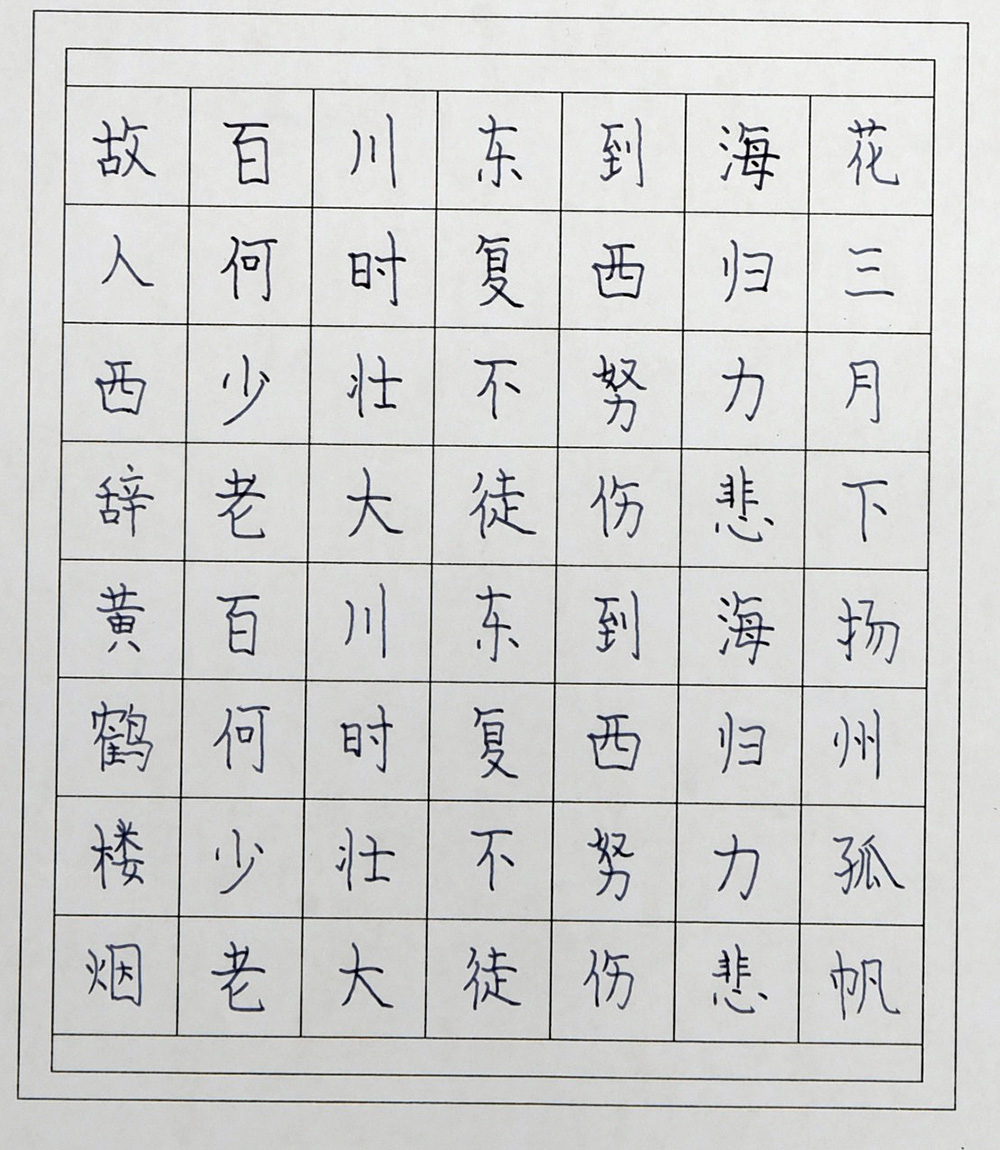 故百川东到海花
人何时复西归三
西少壮不努力月
辞老大徒伤悲下
黄百川东到海扬
鹤何时复西归州
楼少壮不努力孤
烟老大徒伤悲帆